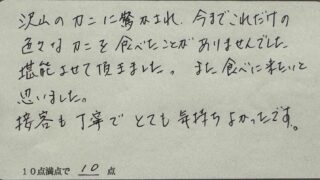 沢山のカニに驚かされ、今までこれだけの
色々なカニを食べたことがありませんでした
堪能させて頂きました。また食べに来たいと
思いました。
接客も丁寧でとても気持ちよかったです。
10点満点で 10 点